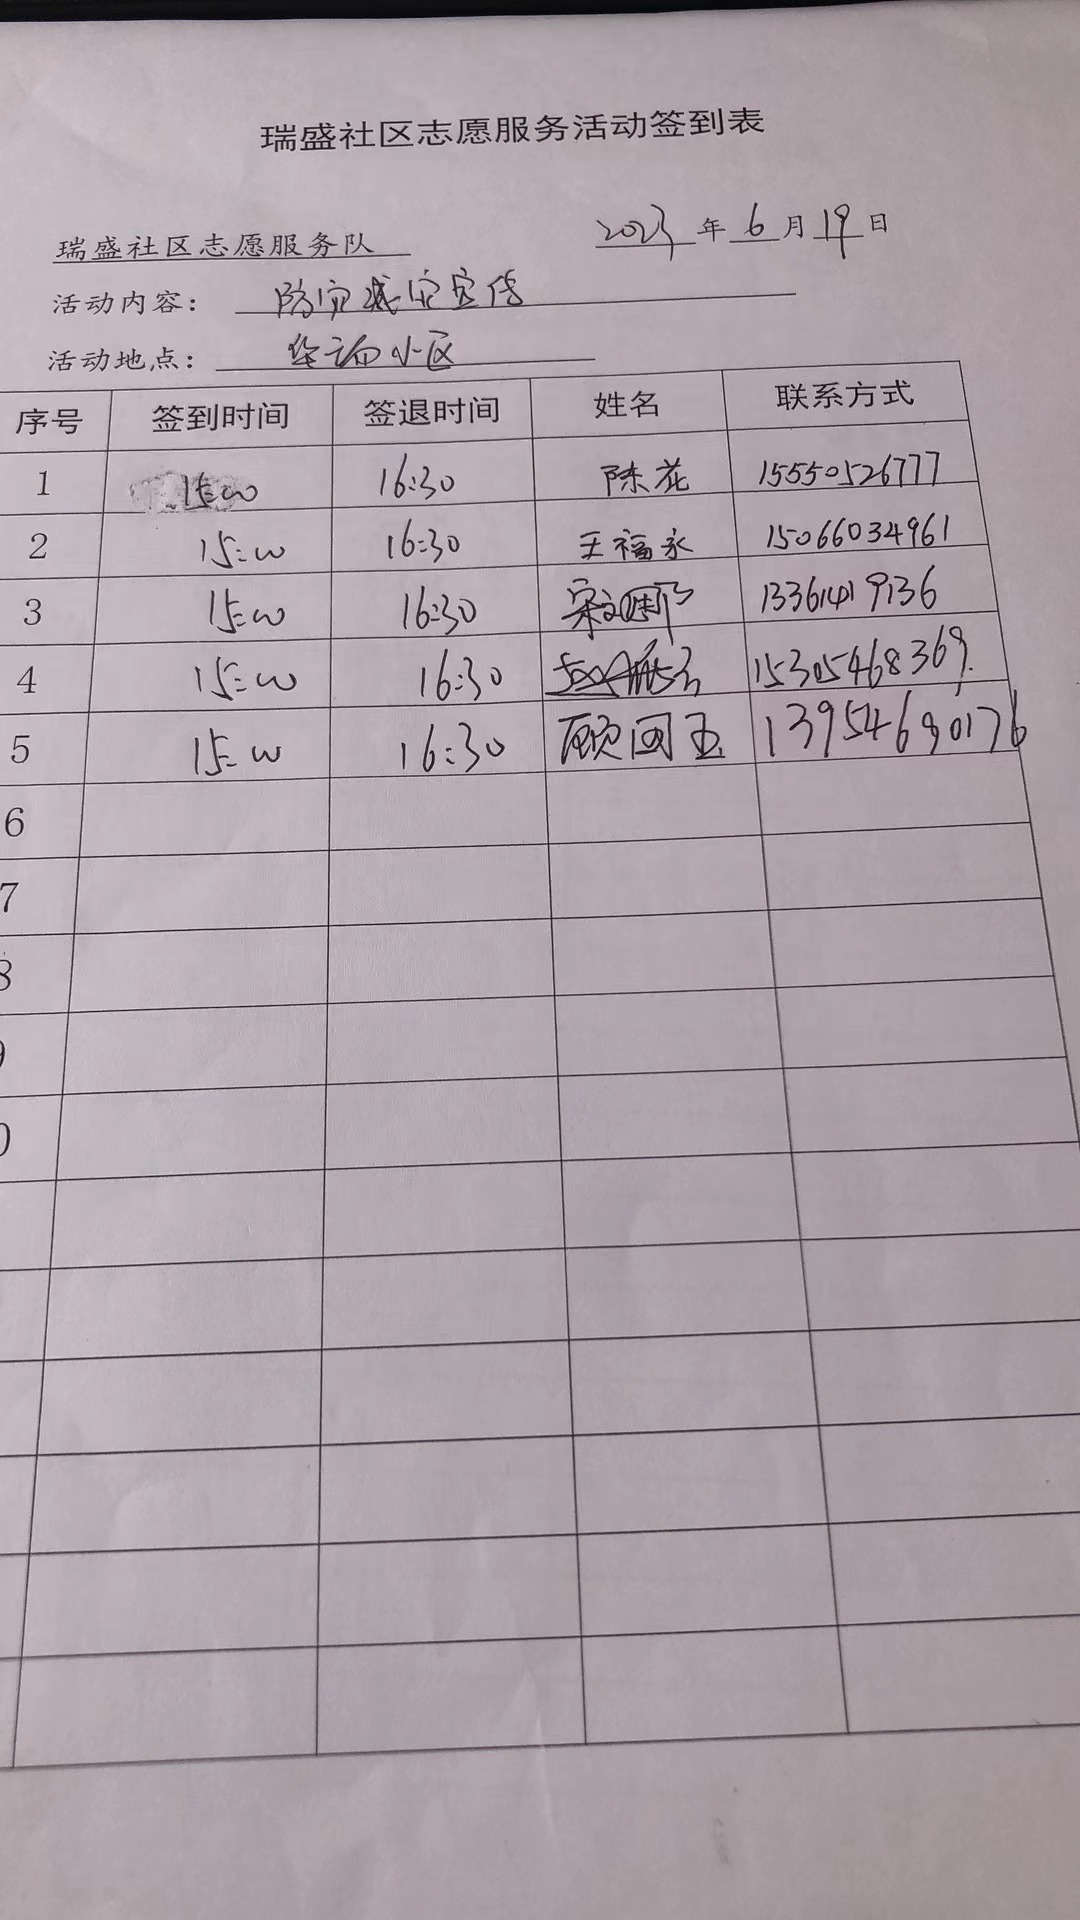 瑞盛社区志愿服务活动签到表
2023年6月19日
瑞盛社区志愿服务队
活动内容：防灾减灾宣传
活动地点：华瑞小区
序号 签到时间 签退时间 姓名 联系方式
1 15:00 16:30 陈花 15550526777
2 15:00 16:30 王福永 15066034961
3 15:00 16:30 13361419136
4 15:00 16:30 15305468369
5 15:00 16:30 顾国玉 13954690176
6
7
8
9
0